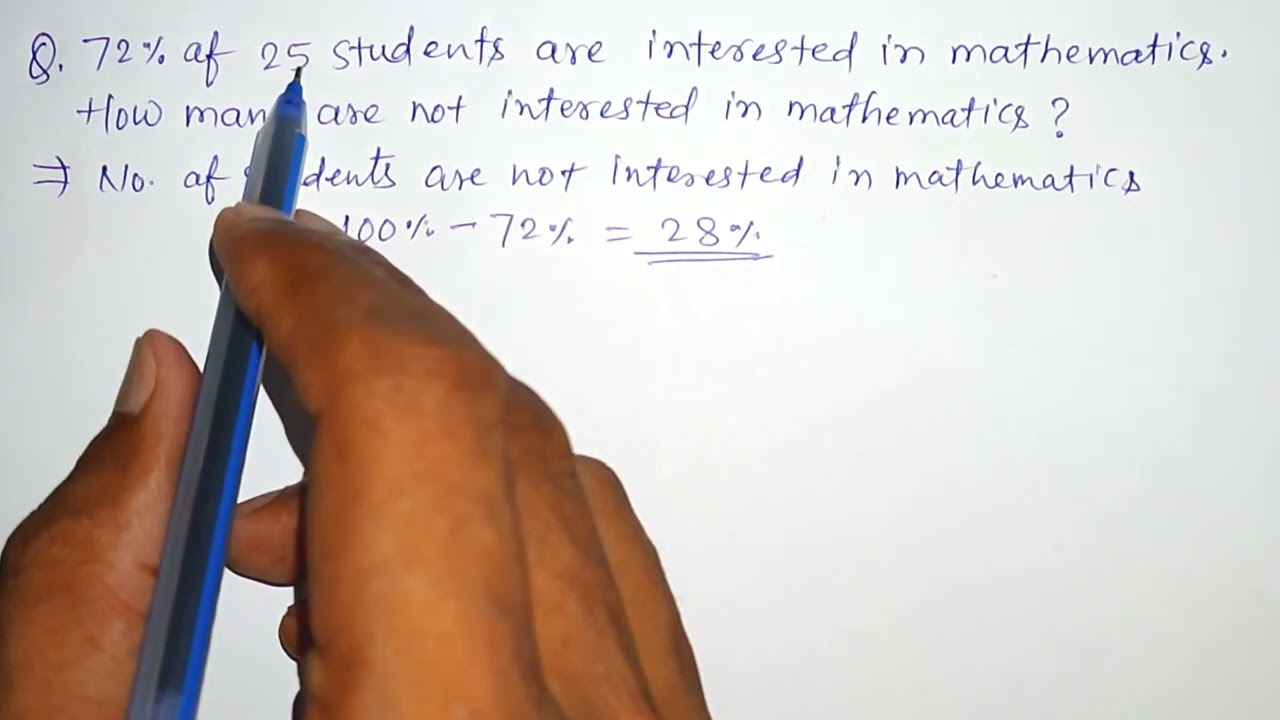 Q. 72% of 25 students are interested in mathematics.
How man are not interested in mathematics ?
⇒ No. of dents are not interested in mathematics
100% - 72% = 28%